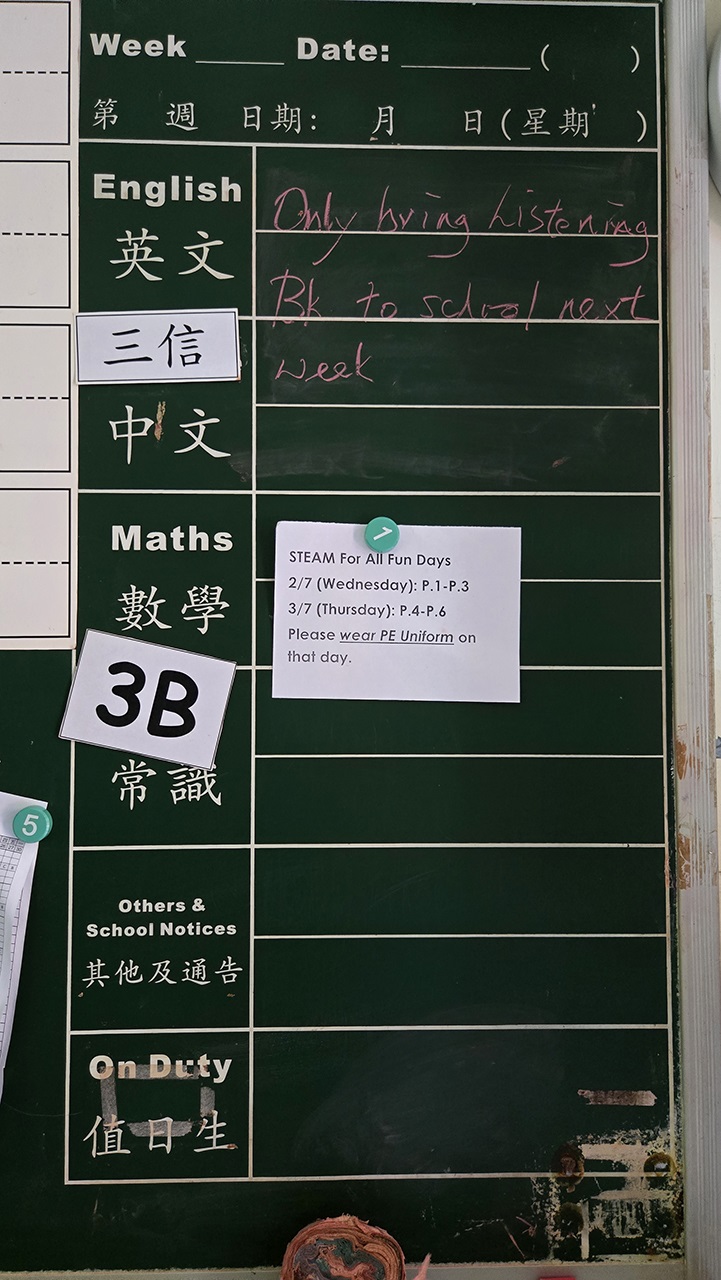 Week ____ Date: ________ ( )
第 週 日期: 月 日(星期 )
English
英文
Only bring Listening
Bk to school next
week
三信
中文
Maths
數學
1
STEAM For All Fun Days
2/7 (Wednesday): P.1-P.3
3/7 (Thursday): P.4-P.6
Please wear PE Uniform on
that day.
3B
常識
5
Others &
School Notices
其他及通告
On Duty
值日生